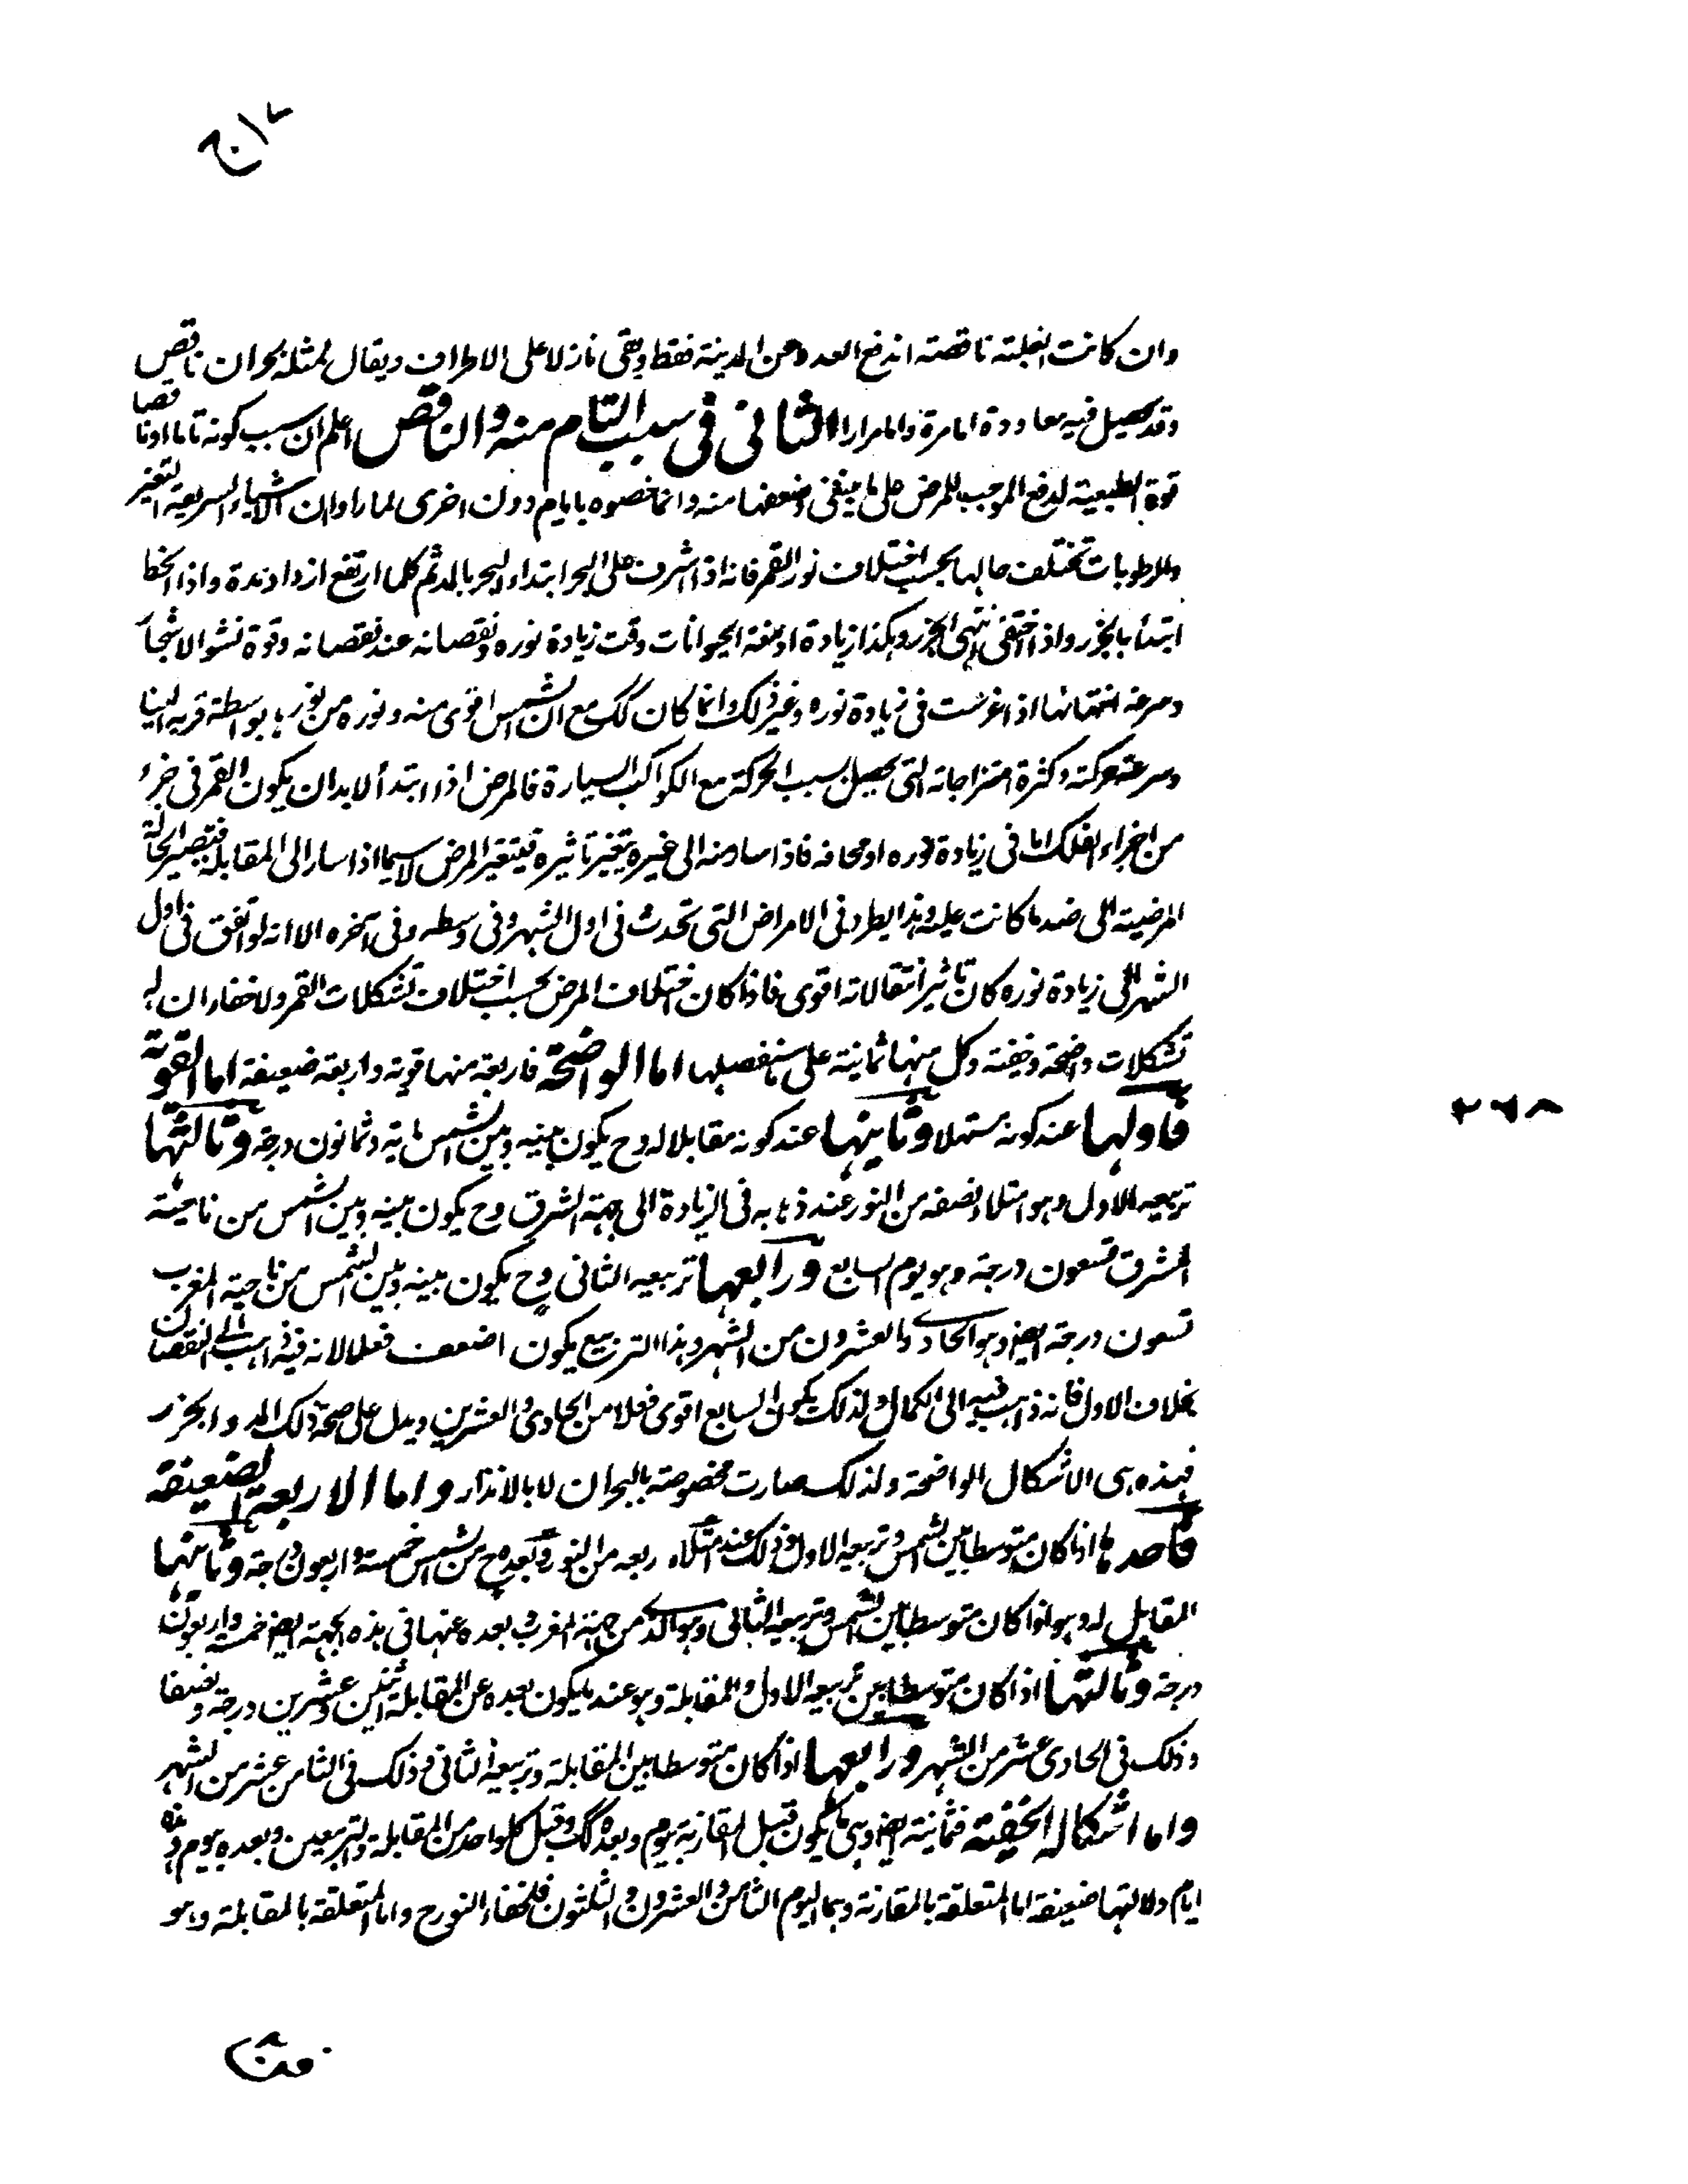 وان كانت الغلبة ناقصة اندفع العدو عن المدينة فقط وبقى نازلا على الاطراف ويقال لمثله بحران ناقص
وقد يحصل فيه معاودة اما مرة واما مرارا الثانى فى سبب التام منه والناقص اعلم ان سبب كونه تاما او ناقصا
قوة الطبيعة لدفع الموجب للمرض على ما ينبغى وضعفها منه وانما خصوه بايام دون اخرى لما راوا ان الاشياء السريعة التغير
والرطوبات تختلف حالها بحسب اختلاف نور القمر فانه اذا اشرف على البحر ابتداء البحر بالمد ثم كلما ارتفع ازداد مده واذا انحط
ابتدأ بالجزر واذا اختفى انتهى الجزر وهكذا زيادة ادمغة الحيوانات وقت زيادة نوره ونقصانه عند نقصانه وقوة نشو الاشجار
وسرعة اذا غرست فى زيادة نوره وغير ذلك وانما كان كك مع ان الشمس اقوى منه ونوره من نورها بواسطة قربه الينا
وسرعة حركته وكثرة امتزاجاته التى يحصل بسبب الحركة مع الكواكب السيارة فالمرض اذا ابتدأ لابد ان يكون القمر فى جزء
من اجزاء الفلك اما فى زيادة نوره او محاقه فاذا سار منه الى غيره يتغير تاثيره فيتغير المرض لاسيما اذا سار الى المقابلة فتصير الحالة
المرضية الى ضد ما كانت عليه وهذا يطرد فى الامراض التى تحدث فى اول الشهر وفى وسطه وفى آخره الا انه لو اتفق فى اول
الشهر الى زيادة نوره كان تاثير انتقالاته اقوى فاذا كان اختلاف المرض بحسب اختلاف تشكلات القمر ولا خفاء ان له
تشكلات واضحة وخفية وكل منها ثمانية على ما سنفصلها اما الواضحة فاربعة منها قوية واربعة ضعيفة اما القوية
فاولها عند كونه مستهلا وثانيها عند كونه مقابلا له وح يكون بينه وبين الشمس ماية وثمانون درجة وثالثها
تربيعه الاول وهو امتلاء نصفه من النور عند ذهابه فى الزيادة الى جهة الشرق وح يكون بينه وبين الشمس من ناحية
المشرق تسعون درجة وهو يوم السابع ورابعها تربيعه الثانى وح يكون بينه وبين الشمس من ناحية المغرب
تسعون درجة ايضا وهو الحادى والعشرون من الشهر وهذا التربيع يكون اضعف فعلا لانه فيه ذاهب الى النقصان
بخلاف الاول فانه ذاهب فيه الى الكمال ولذلك يكون السابع اقوى فعلا من الحادى والعشرين ويدل على صحة ذلك المد والجزر
فهذه هى الاشكال الواضحة ولذلك صارت مخصوصة بالبحران لا بالانذار واما الاربعة الضعيفة
فاحدها اذا كان متوسطا بين الشمس وتربيعه الاول وذلك عند امتلاء ربعه من النور وبعده ح من الشمس خمسة واربعون درجة وثانيها
المقابل له وهو اذا كان متوسطا بين الشمس وتربيعه الثانى وهو الذى من جهة المغرب بعده عنها فى هذه الجهة ايضا خمسة واربعون
درجة وثالثها اذا كان متوسطا بين تربيعه الاول والمقابلة وهو عند ما يكون بعده عن المقابلة اثنين وعشرين درجة ونصفا
وذلك فى الحادى عشر من الشهر ورابعها اذا كان متوسطا بين المقابلة وتربيعه الثانى وذلك فى الثامن عشر من الشهر
واما اشكاله الخفية فثمانية ايضا وهى ما يكون قبل المقارنة بيوم وبعده كك وقبل كل واحد من المقابلة والتربيعين وبعده بيوم وهذه
ايام دلالتها ضعيفة اما المتعلقة بالمقارنة وهما اليوم الثامن والعشرون والثلثون فلخفاء النور ح واما المتعلقة بالمقابلة وهو
٢٦٨